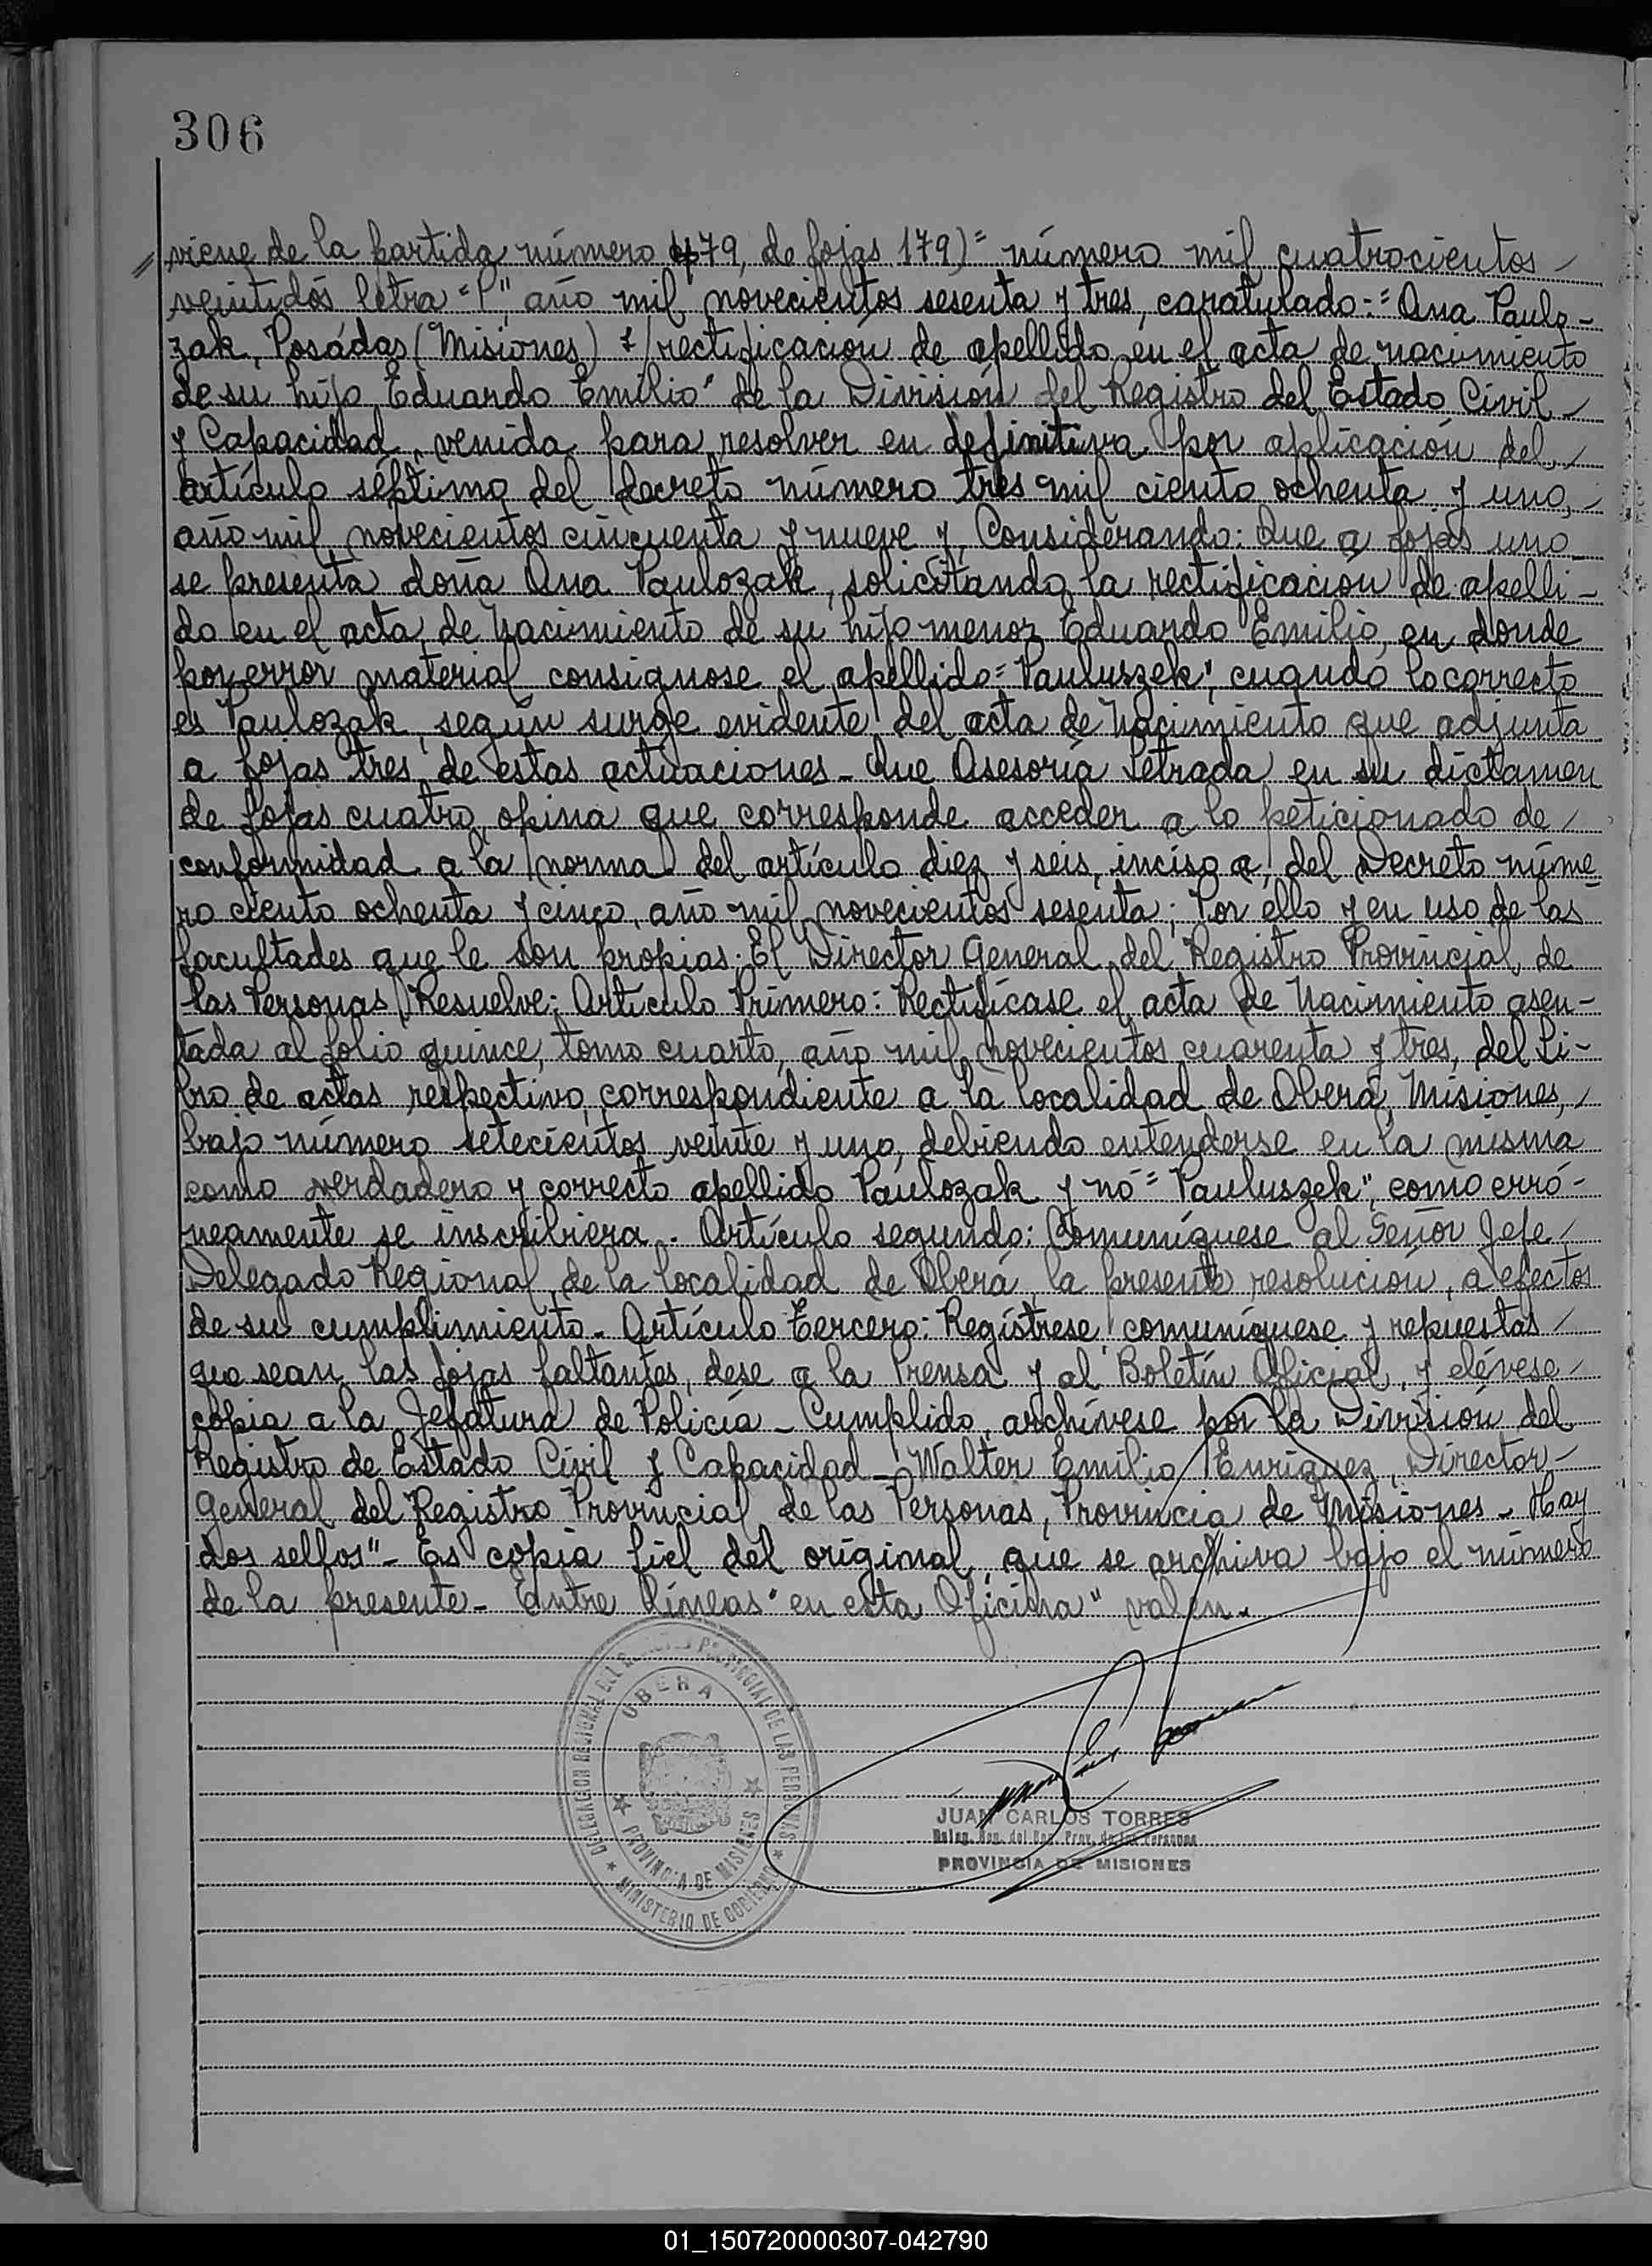 306
// viene de la partida número 479, de fojas 179)= número mil cuatrocientos /
veintidós letra "P", año mil novecientos sesenta y tres, caratulado:= Ana Paulo-
zak, Posadas (Misiones) s/ rectificación de apellido en el acta de nacimiento
de su hijo Eduardo Emilio" de la División del Registro del Estado Civil /
y Capacidad, venida para resolver en definitiva por aplicación del /
artículo séptimo del decreto número tres mil ciento ochenta y uno, /
año mil novecientos cincuenta y nueve y, Considerando: Que a fojas uno
se presenta doña Ana Paulozak, solicitando la rectificación de apelli-
do en el acta de nacimiento de su hijo menor Eduardo Emilio, en donde
por error material consignose el apellido= Pauluszek", cuando lo correcto
es Paulozak, según surge evidente del acta de nacimiento que adjunta
a fojas tres de estas actuaciones - Que Asesoría Letrada en su dictamen
de fojas cuatro, opina que corresponde acceder a lo peticionado de /
conformidad a la norma del artículo diez y seis, inciso a, del Decreto núme
ro ciento ochenta y cinco, año mil novecientos sesenta; Por ello y en uso de las
facultades que le son propias: El Director General del Registro Provincial de
las Personas, Resuelve: Artículo Primero: Rectifícase el acta de Nacimiento asen-
tada al folio quince, tomo cuarto, año mil novecientos cuarenta y tres, del Li-
bro de actas respectivo, correspondiente a la localidad de Oberá, Misiones, /
bajo número setecientos veinte y uno, debiendo entenderse en la misma
como verdadero y correcto apellido Paulozak y nó= Pauluszek", como erró-
neamente se inscribiera. - Artículo segundo: Comuníquese al Señor Jefe /
Delegado Regional de la localidad de Oberá, la presente resolución, a efectos
de su cumplimiento - Artículo Tercero: Regístrese, comuníquese y repuestas /
que sean las fojas faltantes, dese a la Prensa y al Boletín Oficial, y elévese /
copia a la Jefatura de Policía - Cumplido, archívese por la División del
Registro de Estado Civil y Capacidad - Walter Emilio Enríquez, Director -
General del Registro Provincial de las Personas, Provincia de Misiones - Hay
dos sellos" - Es copia fiel del original, que se archiva bajo el número
de la presente - Entre líneas "en esta Oficina" valen.
DELEGACION REGIONAL DEL REGISTRO PROVINCIAL DE LAS PERSONAS
OBERA
PROVINCIA DE MISIONES
MINISTERIO DE GOBIERNO
JUAN CARLOS TORRES
Deleg. Reg. del Reg. Prov. de las Personas
PROVINCIA DE MISIONES
01_150720000307-042790